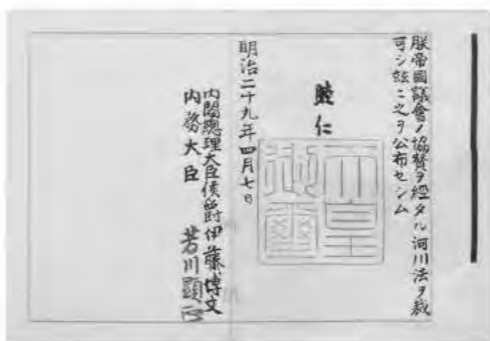 朕帝國議會ノ協賛ヲ經タル河川法ヲ裁
可シ玆ニ之ヲ公布セシム
睦仁
天皇御璽
明治二十九年四月七日
内閣總理大臣侯爵伊藤博文
内務大臣　芳川顯正